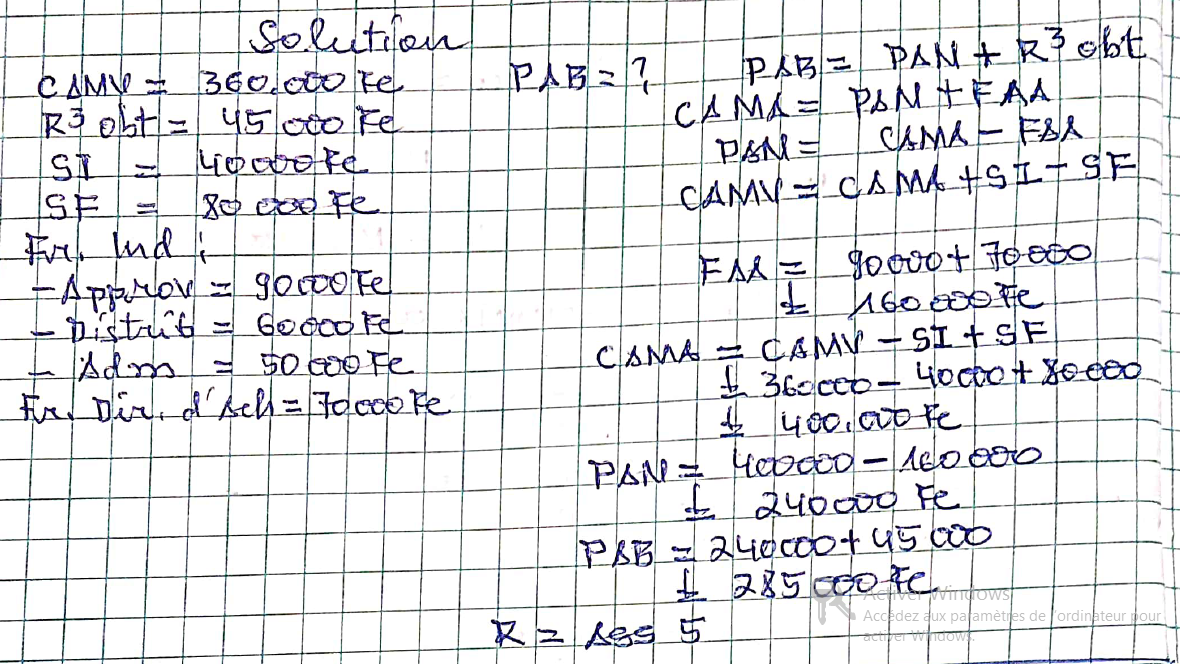 Solution
CAMV = 360.000 Fc
R³ obt = 45 000 Fc
SI = 40000 Fc
SF = 80 000 Fc
Fr. Ind :
- Approv = 90000 Fc
- Distrib = 60000 Fc
- Adm = 50000 Fc
Fr. Dir. d'Ach = 70000 Fc
PAB = ?
PAB = PAN + R³ obt
CAMA = PAN + FAA
PAN = CAMA - FAA
CAMV = CAMA + SI - SF
FAA = 90000 + 70000
= 160.000 Fc
CAMA = CAMV - SI + SF
= 360000 - 40000 + 80000
= 400.000 Fc
PAN = 400000 - 160000
= 240000 Fc
PAB = 240000 + 45 000
= 285 000 Fc
R = Ass 5
Activer Windows
Accédez aux paramètres de l'ordinateur pour
activer Windows.